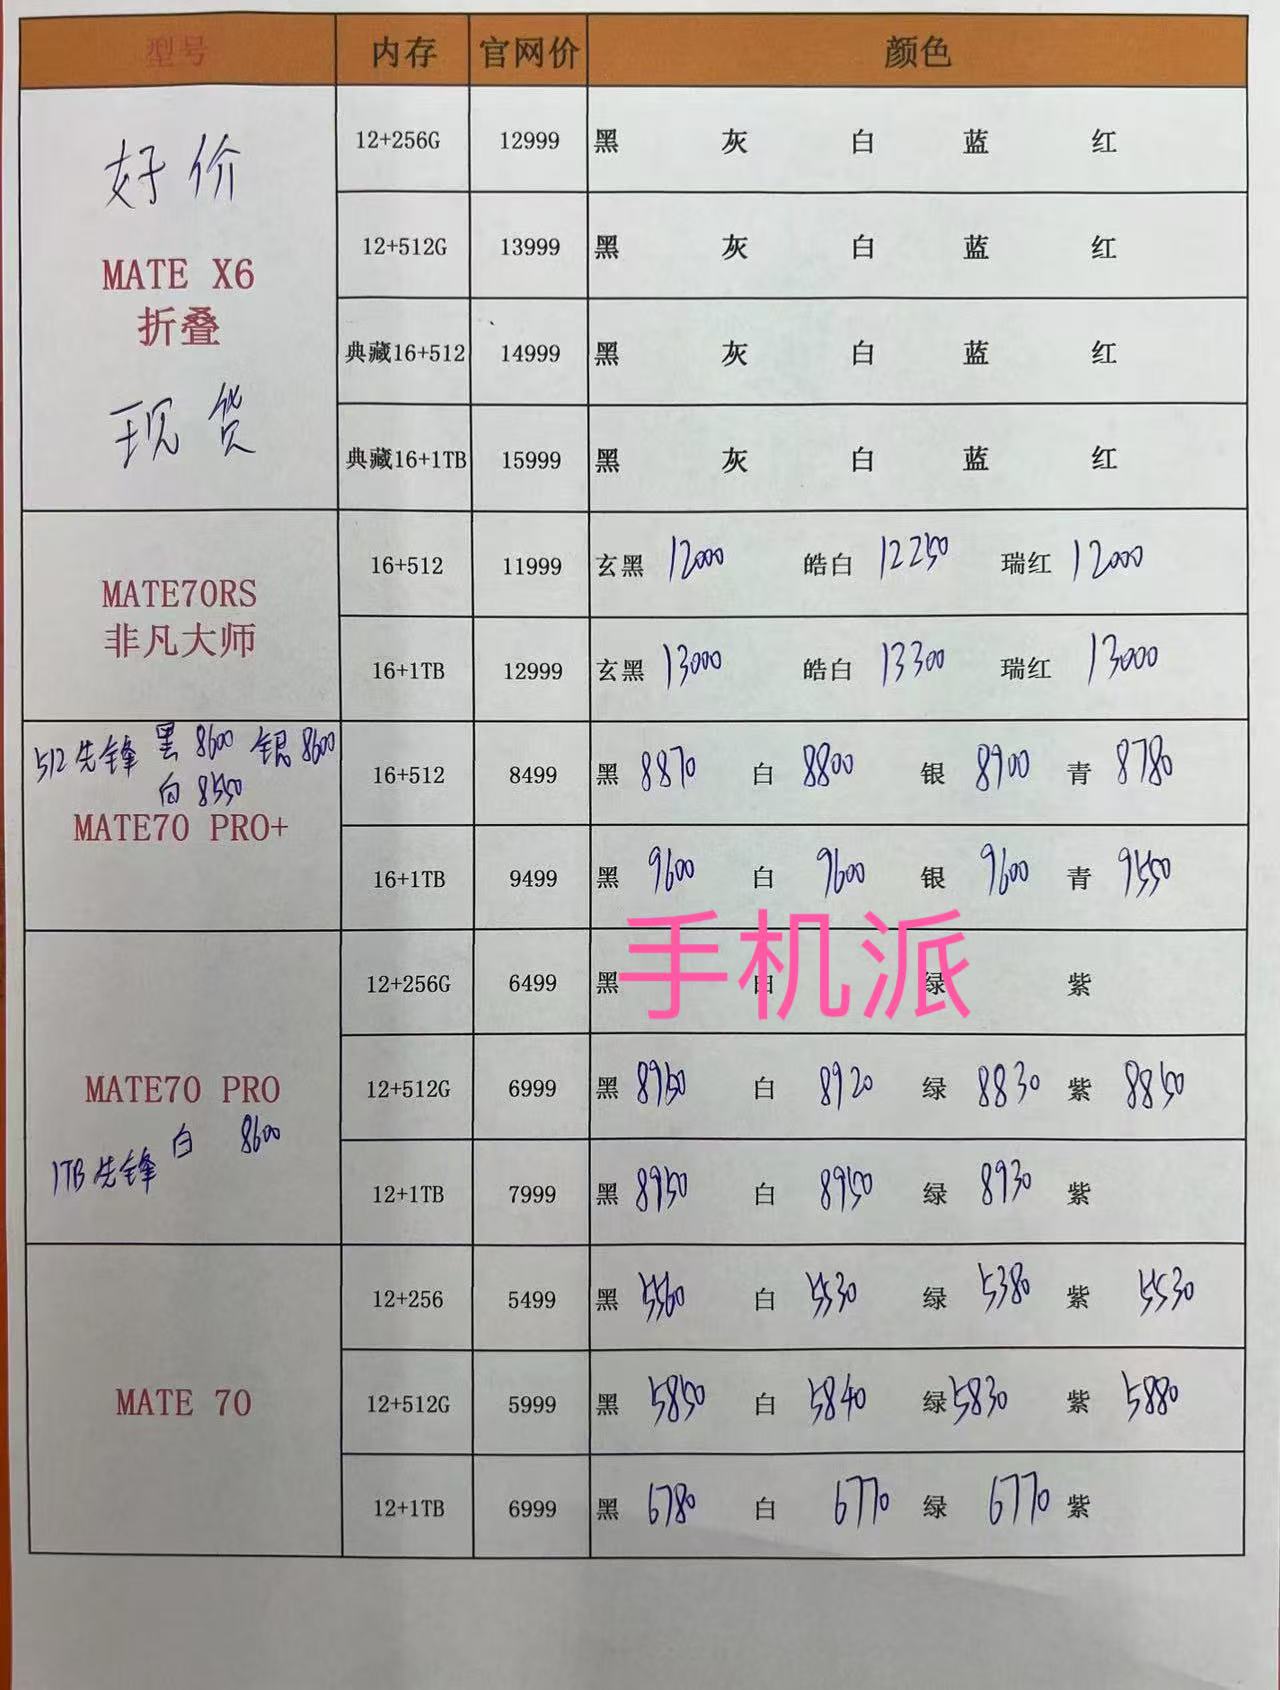 型号 内存 官网价 颜色
好价
MATE X6
折叠
现货
12+256G 12999 黑 灰 白 蓝 红
12+512G 13999 黑 灰 白 蓝 红
典藏16+512 14999 黑 灰 白 蓝 红
典藏16+1TB 15999 黑 灰 白 蓝 红
MATE70RS
非凡大师
16+512 11999 玄黑 12000 皓白 12250 瑞红 12000
16+1TB 12999 玄黑 13000 皓白 13300 瑞红 13000
512先锋 黑 8600 银 8600
白 8550
MATE70 PRO+
16+512 8499 黑 8870 白 8800 银 8900 青 8780
16+1TB 9499 黑 9600 白 9600 银 9600 青 9550
手机派
MATE70 PRO
1TB先锋 白 8600
12+256G 6499 黑 白 绿 紫
12+512G 6999 黑 8950 白 8920 绿 8830 紫 8850
12+1TB 7999 黑 8950 白 8950 绿 8930 紫
MATE 70
12+256 5499 黑 5560 白 5530 绿 5380 紫 5530
12+512G 5999 黑 5850 白 5840 绿 5830 紫 5880
12+1TB 6999 黑 6780 白 6770 绿 6770 紫